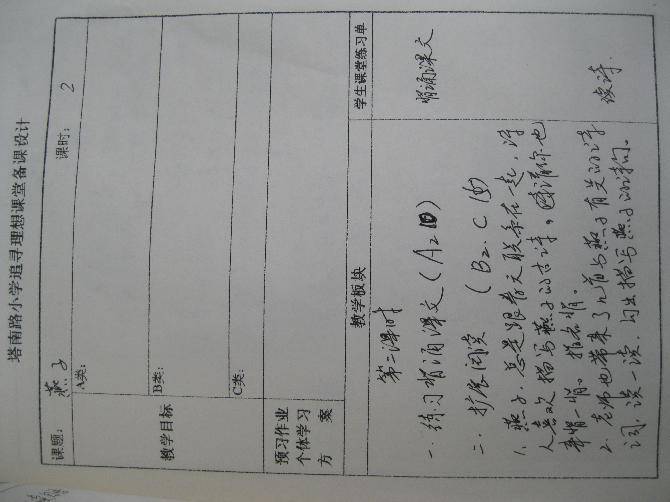 塔南路小学追寻理想课堂备课设计
课题: 燕子 课时: 2
教学目标
A类:
B类:
C类:
预习作业
个体学习
方 案
教学板块 学生课堂练习单
第二课时
一. 练习背诵课文(A2 背诵课文
二. 扩展阅读 (B2. C
1. 燕子, 总是跟春天联系在一起, 诗
人喜欢描写燕子的古诗,
指名背。
2. 老师也带来了几首与燕子有关的诗
词, 读一读, 勾出描写燕子的诗句。 读诗.